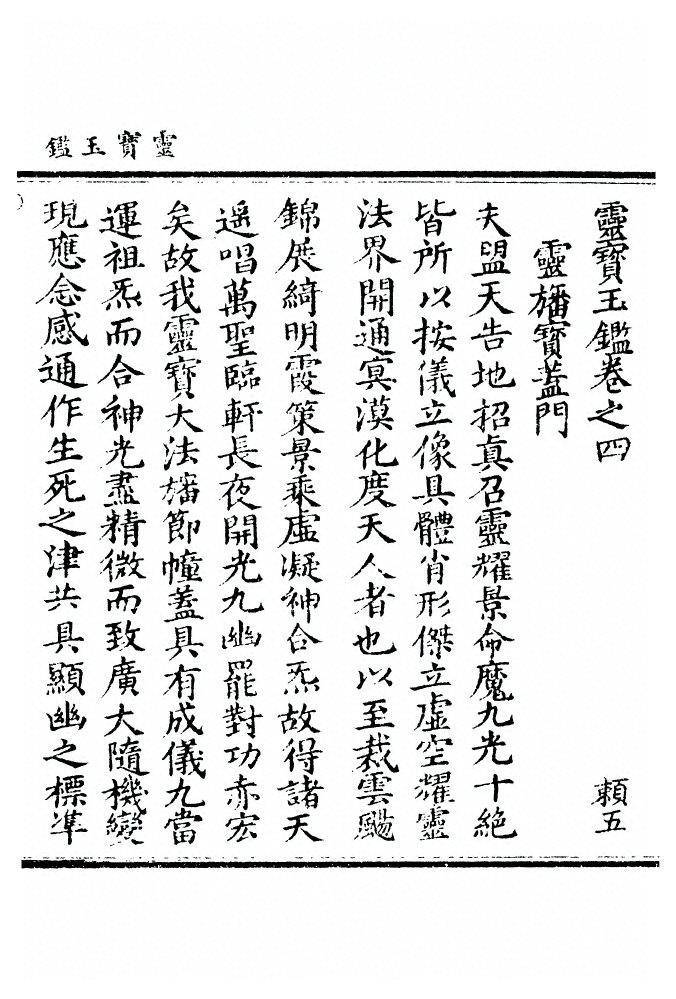 靈寶玉鑑
靈寶玉鑑卷之四
頼五
靈旛寶蓋門
夫盟天告地招真召靈耀景命魔九光十絶
皆所以按儀立像具體肖形傑立虛空耀靈
法界開通寞漠化度天人者也以至裁雲颺
錦展綺明霞策景乘虛凝神合炁故得諸天
遥唱萬聖臨軒長夜開光九幽罷對功亦宏
矣故我靈寶大法旛節幢蓋具有成儀九當
運祖炁而合神光盡精微而致廣大隨機變
現應念感通作生死之津共具顯幽之標準